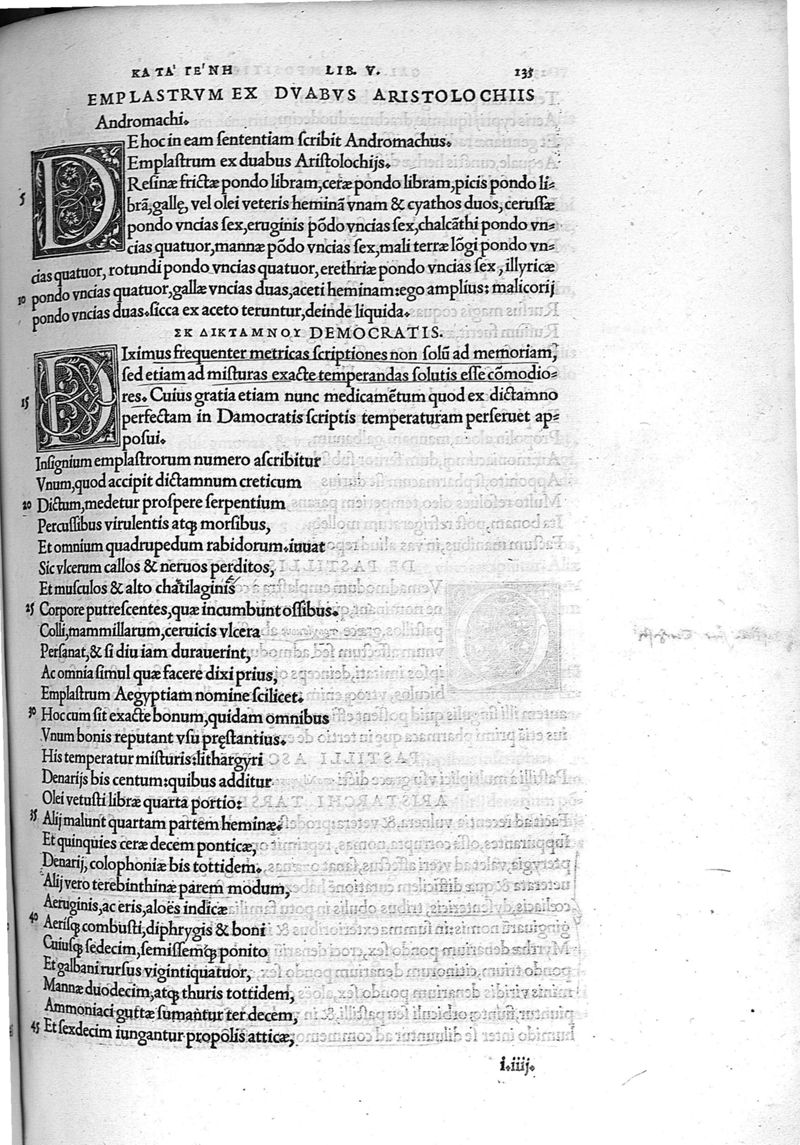 ΚΑΤΑ' ΓΕ'ΝΗ LIB. V. 135
EMPLASTRVM EX DVABVS ARISTOLOCHIIS
Andromachi.
DE hoc in eam ſententiam ſcribit Andromachus.
Emplaſtrum ex duabus Ariſtolochijs.
Reſinæ frictæ pondo libram, ceræ pondo libram, picis pondo li-
5 brā, gallę, vel olei veteris heminā vnam & cyathos duos, ceruſſæ
pondo vncias ſex, eruginis pōdo vncias ſex, chalcāthi pondo vn-
cias quatuor, mannæ pōdo vncias ſex, mali terræ lōgi pondo vn-
cias quatuor, rotundi pondo vncias quatuor, erethriæ pondo vncias ſex, illyricæ
10 pondo vncias quatuor, gallæ vncias duas, aceti heminam: ego amplius: malicorij
pondo vncias duas. ſicca ex aceto teruntur, deinde liquida.
ΣΚ ΔΙΚΤΑΜΝΟΥ DEMOCRATIS.
DIximus frequenter metricas ſcriptiones non ſolū ad memoriam,
ſed etiam ad miſturas exacte temperandas ſolutis eſſe cōmodio-
15 res. Cuius gratia etiam nunc medicamētum quod ex dictamno
perfectam in Damocratis ſcriptis temperaturam perſeruet ap-
poſui.
Inſignium emplaſtrorum numero aſcribitur
Vnum, quod accipit dictamnum creticum
20 Dictum, medetur proſpere ſerpentium
Percuſſibus virulentis atq; morſibus,
Et omnium quadrupedum rabidorum. iuuat
Sic vlcerum callos & neruos perditos,
Et muſculos & alto chatilaginis
25 Corpore putreſcentes, quæ incumbunt oſſibus.
Colli, mammillarum, ceruicis vlcera
Perſanat, & ſi diu iam durauerint,
Ac omnia ſimul quæ facere dixi prius,
Emplaſtrum Aegyptiam nomine ſcilicet.
30 Hoc cum ſit exacte bonum, quidam omnibus
Vnum bonis reputant vſu pręſtantius.
His temperatur miſturis: lithargyri
Denarijs bis centum: quibus additur
Olei vetuſti libræ quarta portio:
35 Alij malunt quartam partem heminæ.
Et quinquies ceræ decem ponticæ,
Denarij, colophoniæ bis tottidem.
Alij vero terebinthinæ parem modum,
Aeruginis, ac eris, aloës indicæ
40 Aeriſq; combuſti, diphrygis & boni
Cuiusq; ſedecim, ſemiſſemq; ponito
Et galbani rurſus vigintiquatuor,
Mannæ duodecim, atq; thuris tottidem,
Ammoniaci guttæ ſumantur ter decem,
45 Et ſexdecim iungantur propolis atticæ,
i.iiij.